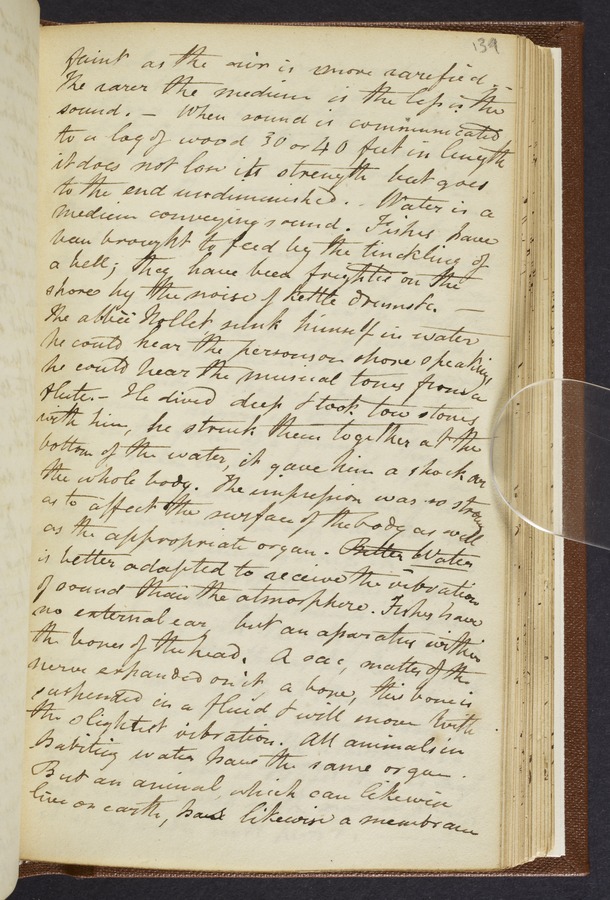 139
faint as the air is more rarefied. –
The rarer the medium is the less is the
sound. – When sound is communicated
to a log of wood 30 or 40 feet in length
it does not lose its strength but goes
to the end undiminished. – Water is a
medium conveying sound. Fishes have
been brought to feed by the tinckling of
a bell; they have been frighted on the
shore by the noise of kettle drums &c. –
The abbeé Nollet sunk himself in water
he could hear the persons on shore speaking
he could hear the musical tones from a
flute. – He dived deep & took two stones
with him, he struck them together at the
bottom of the water, it gave him a shock on
the whole body. The impression was so strong
as to affect the surface of the body as well
as the appropriate organ. – Better Water
is better adapted to receive the vibration
of sound than the atmosphere. Fishes have
no external ear, but an aparatus within
the bones of the head. A sac, matter of the
nerve expanded on it a bone, this bone is
suspended in a fluid & will move with
the slightest vibration. All animals in
habiting water have the same organ.
But an animal which can likewise
live on earth, has likewise a membrane